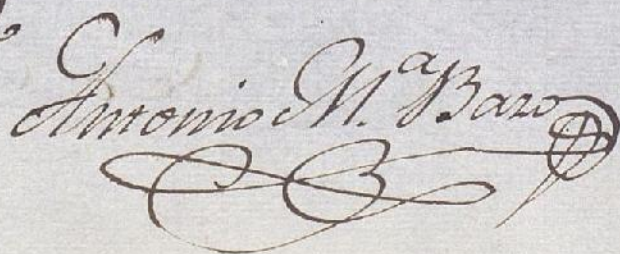 Antonio M.ª Bazo